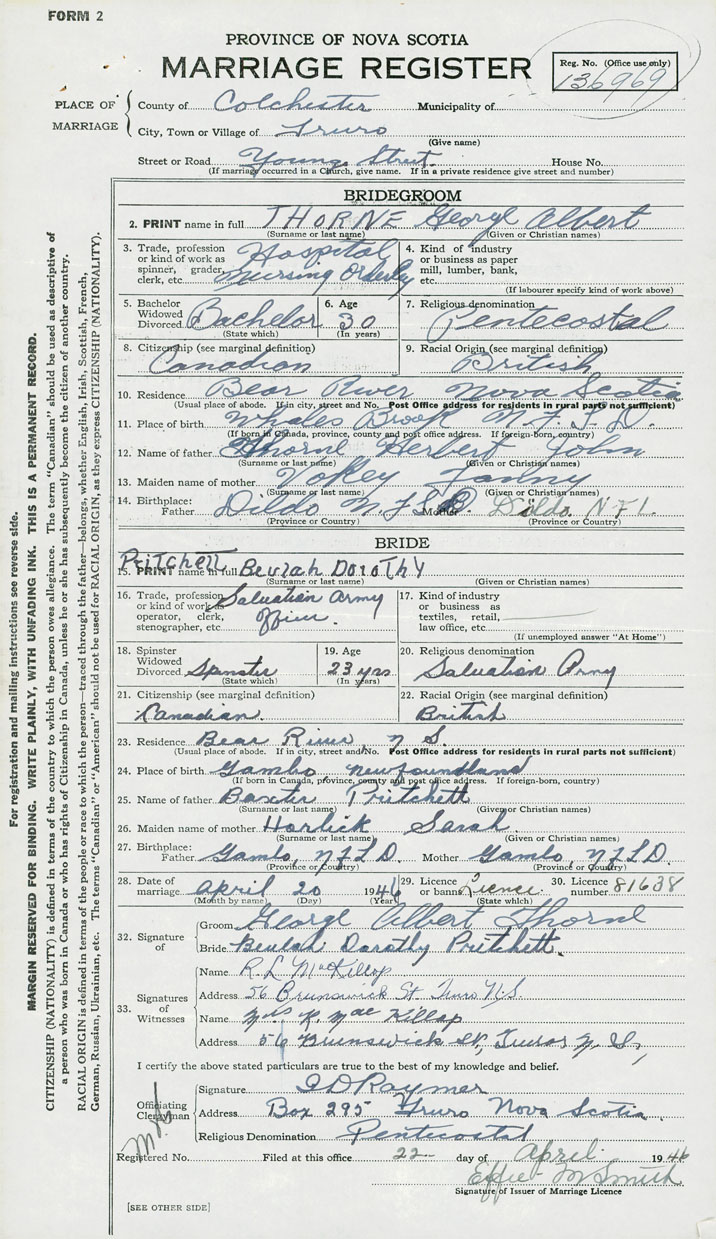 FORM 2
PROVINCE OF NOVA SCOTIA
MARRIAGE REGISTER
Reg. No. (Office use only)
136969
PLACE OF MARRIAGE
County of Colchester Municipality of
City, Town or Village of Truro
(Give name)
Street or Road Young Street. House No.
(If marriage occurred in a Church, give name. If in a private residence give street and number)
BRIDEGROOM
2. PRINT name in full THORNE George Albert
(Surname or last name) (Given or Christian names)
3. Trade, profession or kind of work as spinner, grader, clerk, etc. Hospital Nursing Orderly
4. Kind of industry or business as paper mill, lumber, bank, etc.
(If labourer specify kind of work above)
5. Bachelor Widowed Divorced Bachelor
(State which)
6. Age 30
(In years)
7. Religious denomination Pentecostal
8. Citizenship (see marginal definition) Canadian
9. Racial Origin (see marginal definition) British
10. Residence Bear River Nova Scotia
(Usual place of abode. If in city, street and No. Post Office address for residents in rural parts not sufficient)
11. Place of birth Brook N.F.L.D.
(If born in Canada, province, county and post office address. If foreign-born, country)
12. Name of father Thorne Herbert John
(Surname or last name) (Given or Christian names)
13. Maiden name of mother Fanny
(Surname or last name) (Given or Christian names)
14. Birthplace: Father Dildo N.F.L.D. Mother Dildo NFL.
(Province or Country) (Province or Country)
BRIDE
Pritchett
15. PRINT name in full Beulah DoroThy
(Surname or last name) (Given or Christian names)
16. Trade, profession or kind of work as operator, clerk, stenographer, etc. Salvation Army Officer.
17. Kind of industry or business as textiles, retail, law office, etc.
(If unemployed answer "At Home")
18. Spinster Widowed Divorced Spinster
(State which)
19. Age 23 yrs
(In years)
20. Religious denomination Salvation Army
21. Citizenship (see marginal definition) Canadian.
22. Racial Origin (see marginal definition) British
23. Residence Bear River, N S.
(Usual place of abode. If in city, street and No. Post Office address for residents in rural parts not sufficient)
24. Place of birth Gambo Newfoundland
(If born in Canada, province, county and post office address. If foreign-born, country)
25. Name of father Baxter Pritchett
(Surname or last name) (Given or Christian names)
26. Maiden name of mother Horlick Sarah.
(Surname or last name) (Given or Christian names)
27. Birthplace: Father Gambo, NFLD. Mother Gambo, NFLD.
(Province or Country) (Province or Country)
28. Date of marriage April 20 1946
(Month by name) (Day) (Year)
29. Licence or banns Licence.
(State which)
30. Licence number 81638
32. Signature of
Groom George Albert Thorne
Bride Beulah Dorothy Pritchett.
33. Signatures of Witnesses
Name R. L MacKillop
Address 56 Brunswick St. Truro N.S.
Name Mrs R. Mac Killop
Address 56 Brunswick St, Truro N. S,
I certify the above stated particulars are true to the best of my knowledge and belief.
Officiating Clergyman
Signature Raymer
Address Box 295 Truro Nova Scotia
Religious Denomination Pentecostal
Registered No. Filed at this office 22 day of April 1946
Effie M Smith
Signature of Issuer of Marriage Licence
[SEE OTHER SIDE]
For registration and mailing instructions see reverse side.
MARGIN RESERVED FOR BINDING. WRITE PLAINLY, WITH UNFADING INK. THIS IS A PERMANENT RECORD.
CITIZENSHIP (NATIONALITY) is defined in terms of the country to which the person owes allegiance. The term "Canadian" should be used as descriptive of
a person who was born in Canada or who has rights of Citizenship in Canada, unless he or she has subsequently become the citizen of another country.
RACIAL ORIGIN is defined in terms of the people or race to which the person—traced through the father—belongs, whether English, Irish, Scottish, French,
German, Russian, Ukrainian, etc. The terms "Canadian" or "American" should not be used for RACIAL ORIGIN, as they express CITIZENSHIP (NATIONALITY).